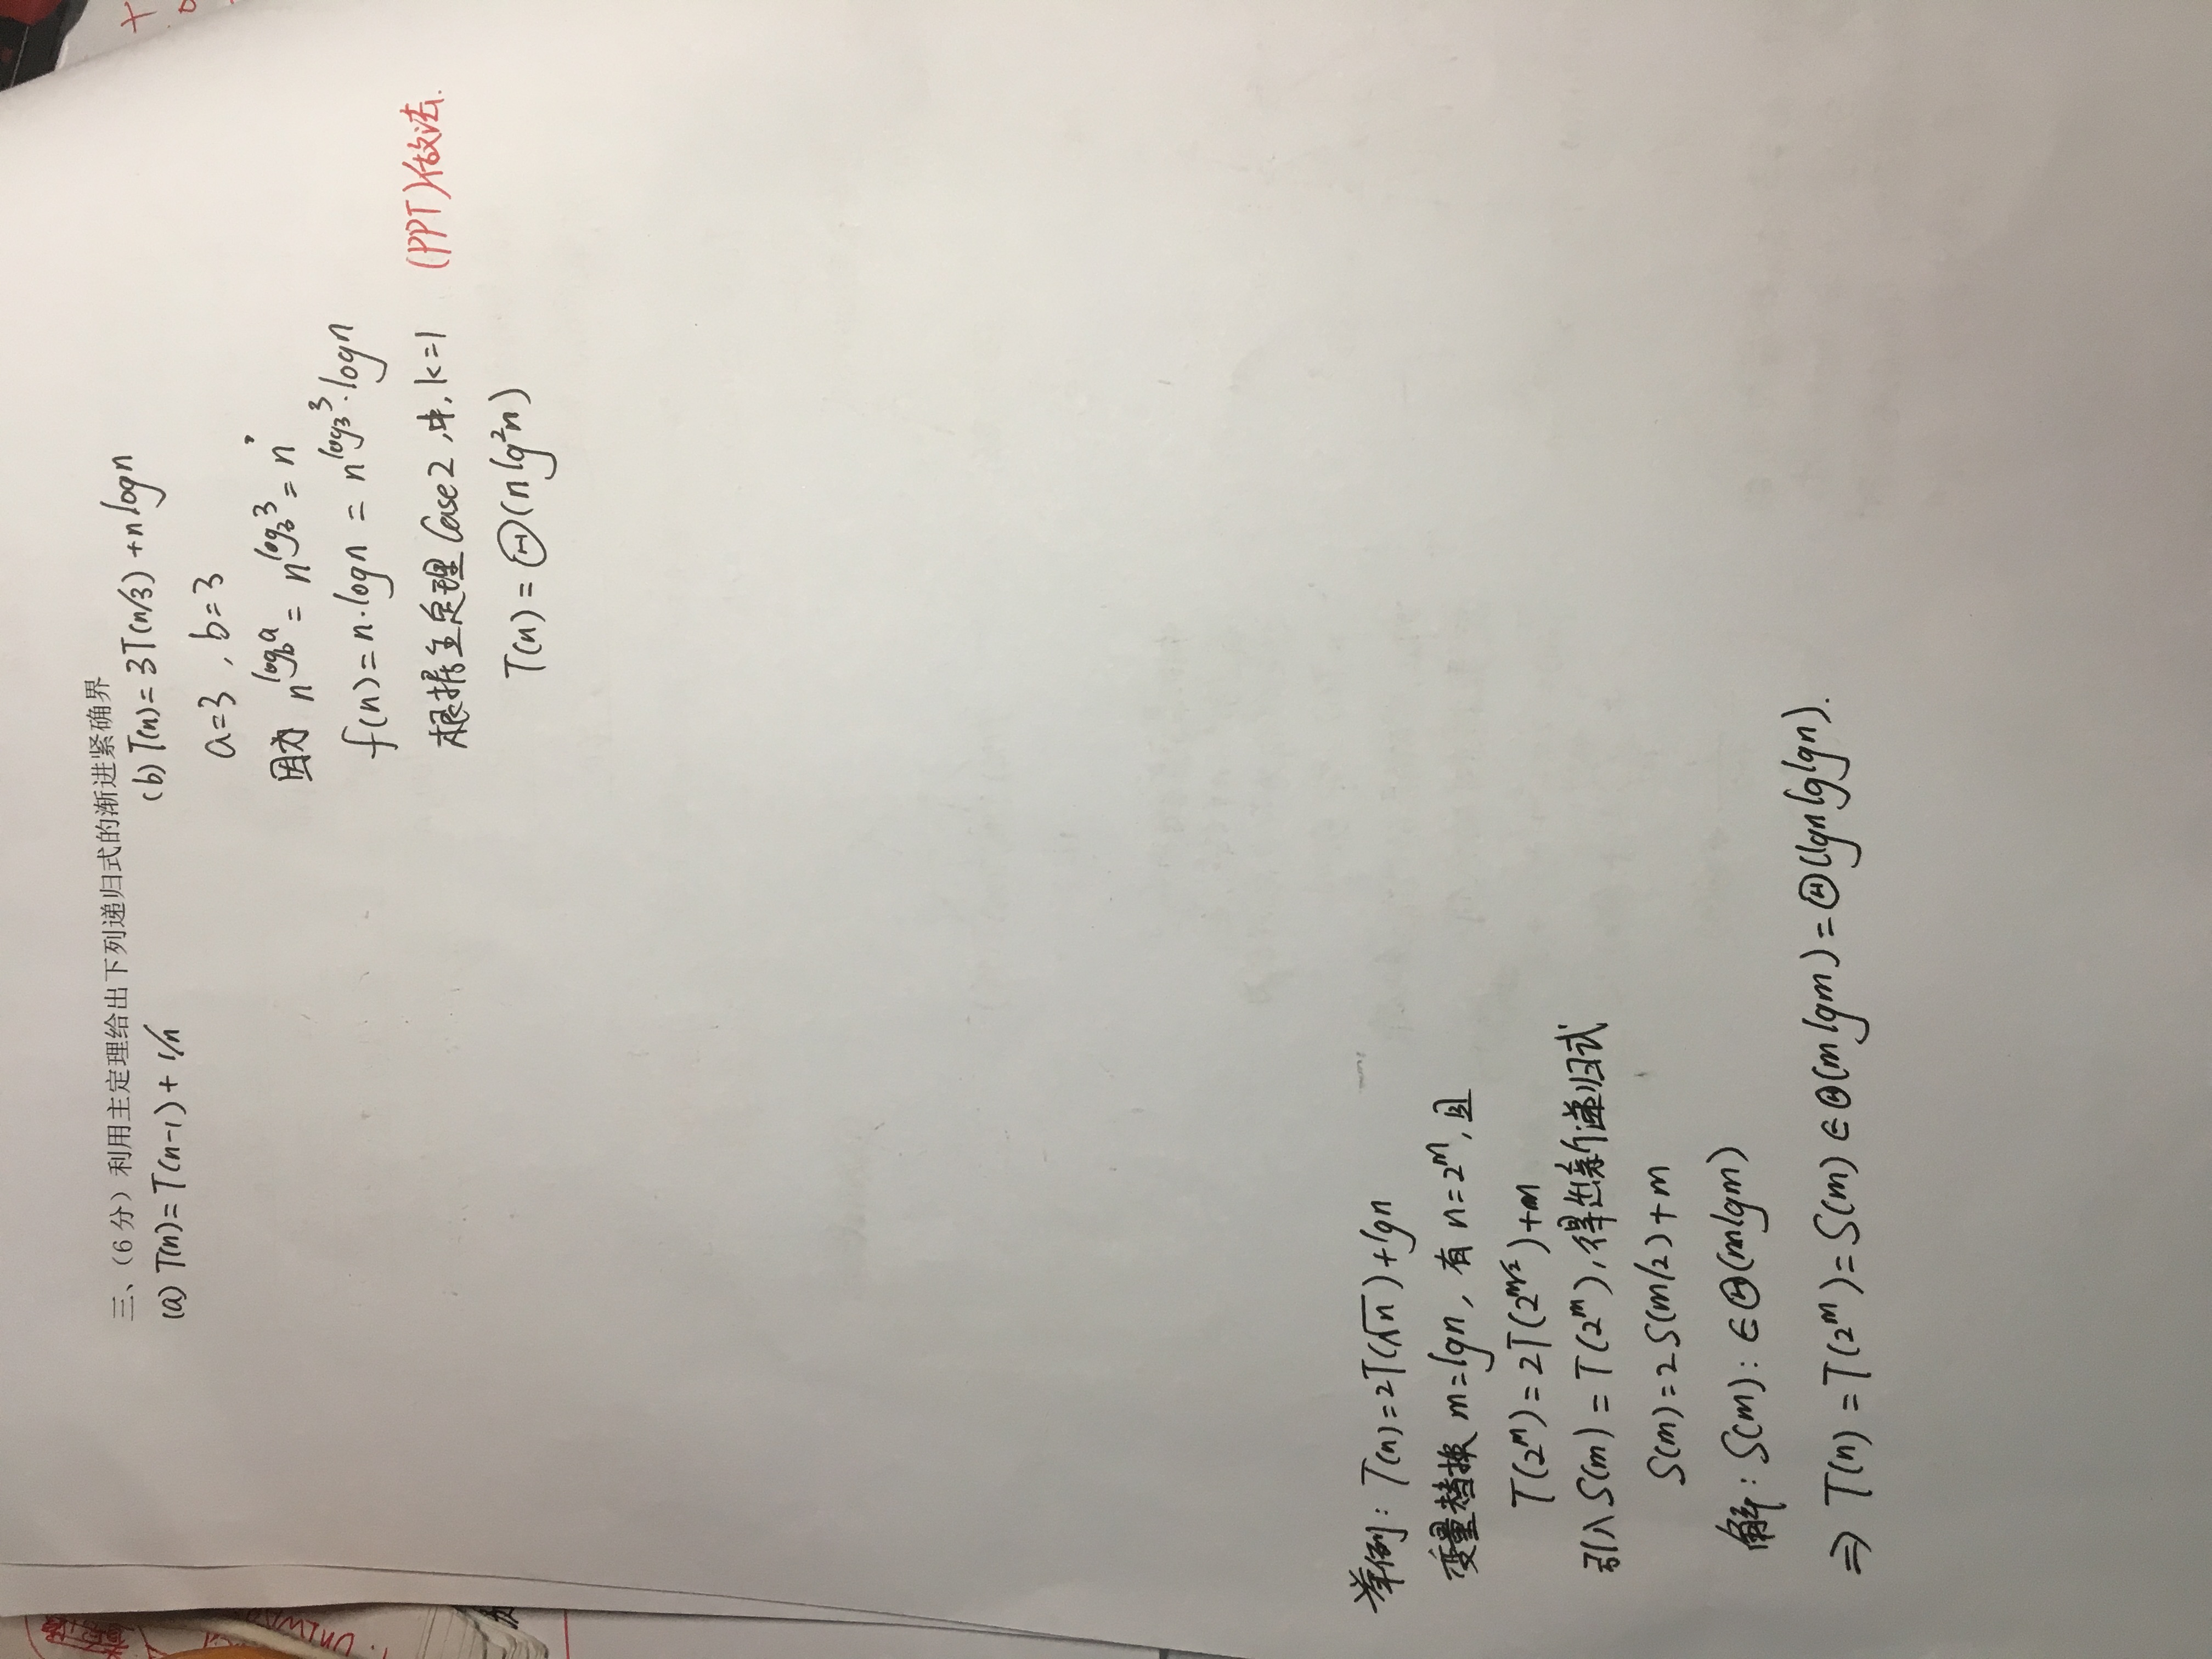 三、（6 分）利用主定理给出下列递归式的渐进紧确界
(a) T(n)= T(n-1) + 1/n
(b) T(n)= 3T(n/3) + n logn
a=3 , b=3
因为 n^{log_b a} = n^{log_3 3} = n
f(n) = n·logn = n^{log_3 3}·logn
根据主定理 Case 2 ,中, k=1 (PPT)做法.
T(n) = Θ(n lg²n)
举例: T(n)=2T(√n)+lgn
变量替换 m=lgn, 有 n=2^m, 且
T(2^m) = 2T(2^{m/2})+m
引入 S(m) = T(2^m), 得出新递归式
S(m)=2S(m/2)+m
解: S(m): ∈Θ(mlgm)
⇒ T(n) = T(2^m)= S(m) ∈Θ(mlgm) = Θ(lgnlglgn).